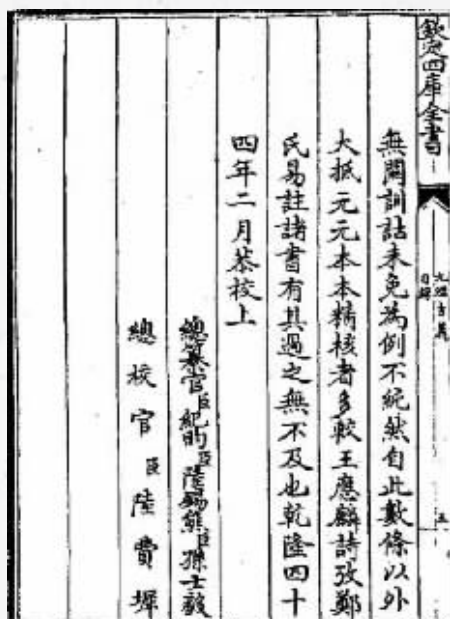 欽定四庫全書
九經古義
目録
五
無關訓詁未免為例不純然自此數條以外
大抵元元本本精核者多較王應麟詩攷鄭
氏易註諸書有其過之無不及也乾隆四十
四年二月恭校上
總纂官臣紀昀臣陸錫熊臣孫士毅
總校官臣陸費墀